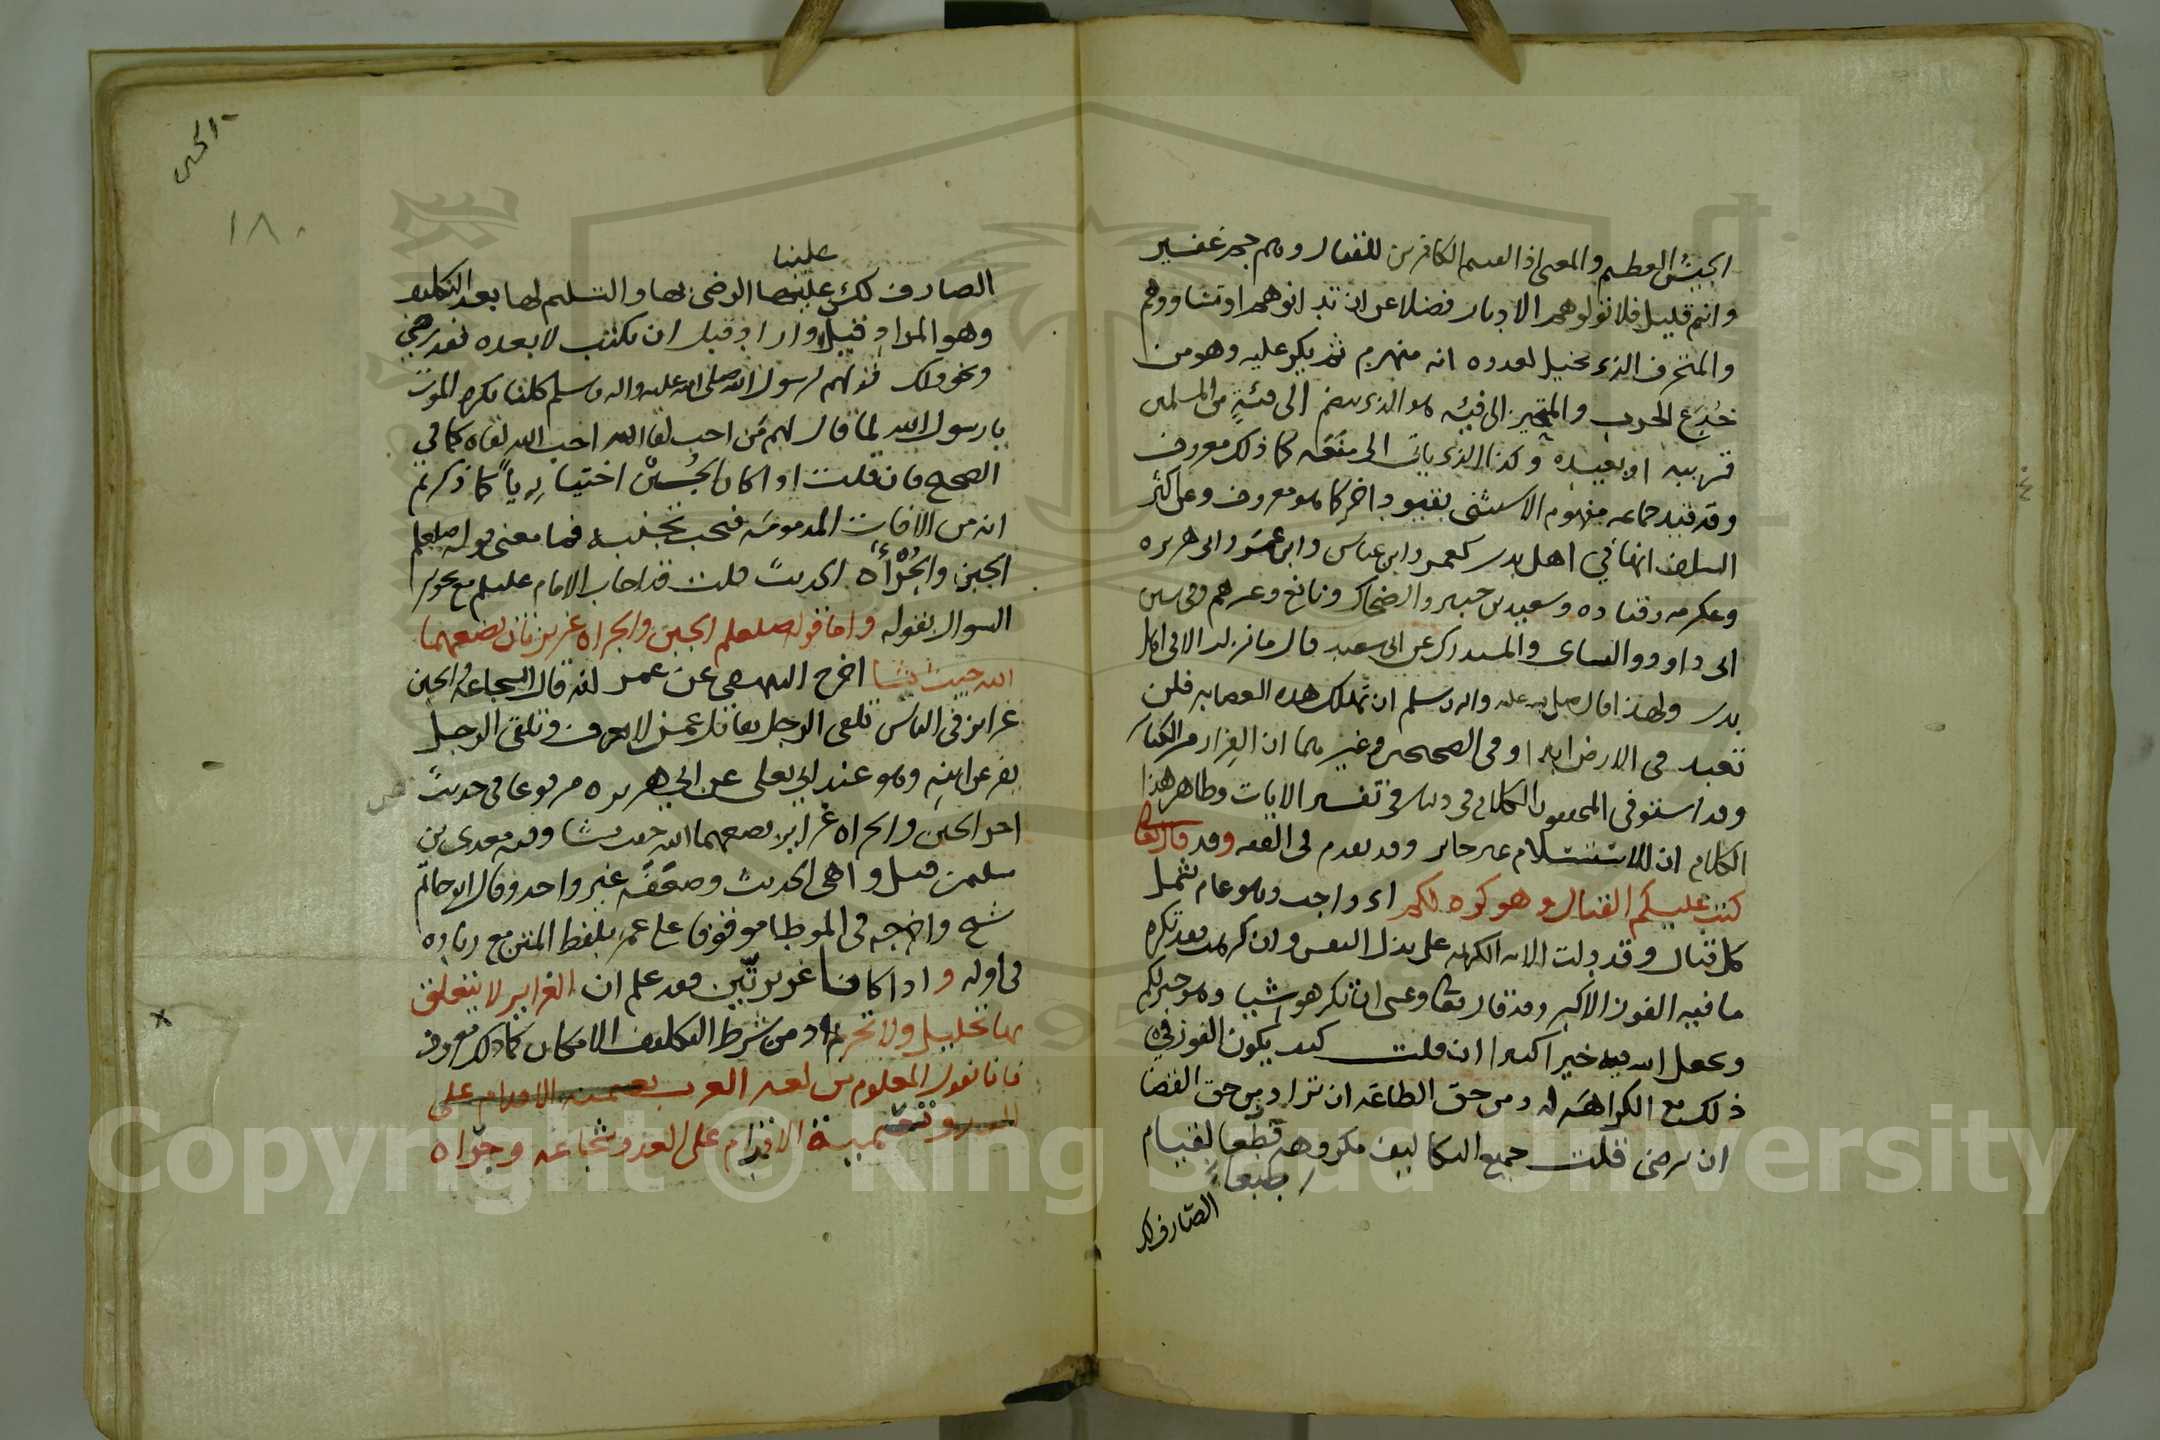 الجيش العظيم والمعنى اذا لقيتم الكافرين للقتال وهم جم غفير
وانتم قليل فلا تولوهم الادبار فضلا عن ان تدانوهم او تساووهم
والمتحرف الذي يخيل لعدوه انه منهزم ثم يكر عليه وهو من
خدع الحرب والمتحيز الى فئه هو الذي ينضم الى فئة من المسلمين
قريبه او بعيدة وكذا الذي ياتي الى منعه كما ذلك معروف
وقد قيد جماعه مفهوم الاستثنى بقيود اخر كما هو معروف وعن اكثر
السلف انها في اهل بدر كعمر وابن عباس وابن عمر وابي هريره
وعكرمه وقتاده وسعيد بن جبير والضحاك ونافع وغيرهم وفي سنن
ابي داوود والنساي والمستدرك عن ابي سعيد قال ما نزلت الا في اهل
بدر ولهذا قال صلى الله عليه واله وسلم ان تهلك هذه العصابه فلن
تعبد في الارض ابدا وفي الصحيحين وغيرهما ان الفرار من الكبائر
وقد استوفى المحققون الكلام في ذلك في تفسير الايات وظاهر هذا
الكلام ان الاستسلام غير جائز وقد تقدم في الفقه وقد قال تعالى
كتب عليكم القتال وهو كره لكم اي واجب وهو عام يشمل
كل قتال وقد دلت الايه الكريمه على بذل النفس وان كرهت فقد تكره
ما فيه الفوز الاكبر وقد قال تعالى وعسى ان تكرهوا شيا وهو خير لكم
ويجعل الله فيه خيرا كثيرا ان قلت كيف يكون الفوز في
ذلك مع الكراهه له ومن حق الطاعة ان تراد ومن حق القضا
ان يرضى قلت جميع التكاليف مكروهه قطعا لقيام
طبعا
الصارف لك
الجبن
١٨٠
علينا
الصارف لكن علينا الرضى بها والتسليم لها بعد التكليف
وهو المراد قيل واراد قبل ان يكتب لا بعده فقد رضي
ونحو ذلك قولهم لرسول الله صلى الله عليه واله وسلم كلنا يكره الموت
يا رسول الله لما قال لهم من احب لقا الله احب الله لقاه كما في
الصحيح فان قلت اذا كان الجبن اختياريا كما ذكرتم
انه من الافات المذمومه فيجب تجنبه فما معنى قوله صلعلم
الجبن والجراه الحديث قلت قد اجاب الامام عليلم مع تحرير
السوال بقوله واما قوله صلعلم الجبن والجراه غريزتان يضعهما
الله حيث يشا اخرج البيهقي عن عمر انه قال الشجاعة والجبن
غرايز في الناس تلقى الرجل يقاتل عمن لا يعرف وتلقى الرجل
يفر عن ابيه وهو عند ابي يعلى عن ابي هريره مرفوعا في حديث
اخر الجبن والجراه غرايز يضعهما الله حيث يشا وفيه معدي بن
سليمن قيل واهي الحديث وضعفه غير واحد وقال ابو حاتم
شيخ واخرجه في الموطا موقوفا على عمر بلفظ المتن مع زياده
في اوله و اذا كانا غريزتين فقد علم ان الغرايز لا يتعلق
بها تحليل ولا تحريم اذ من شرط التكليف الامكان كما ذلك معروف
فانا نقول المعلوم من لغه العرب تسميه الاقدام على
العدو تسمية الاقدام على العدو شجاعه وجراه